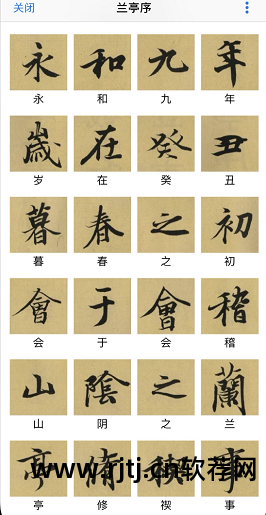 关闭 兰亭序
永 和 九 年
永 和 九 年
歲 在 癸 丑
岁 在 癸 丑
暮 春 之 初
暮 春 之 初
會 于 會 稽
会 于 会 稽
山 陰 之 蘭
山 阴 之 兰
亭 脩 禊 事
www.rjtj.cn软荐网
亭 修 禊 事